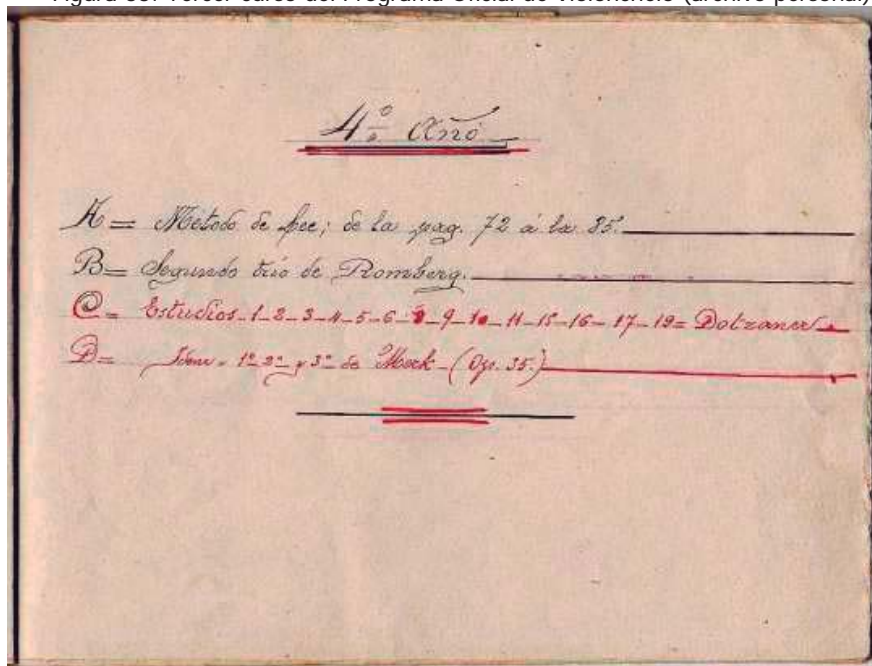 4º Año
A= Método de Lee; de la pag. 72 á la 85.
B= Segundo trio de Romberg.
C= Estudios-1-2-3-4-5-6-8-9-10-11-15-16-17-19= Dotzaner
D= Idem. 1º 2º y 3º de Merk-(Op. 35.)